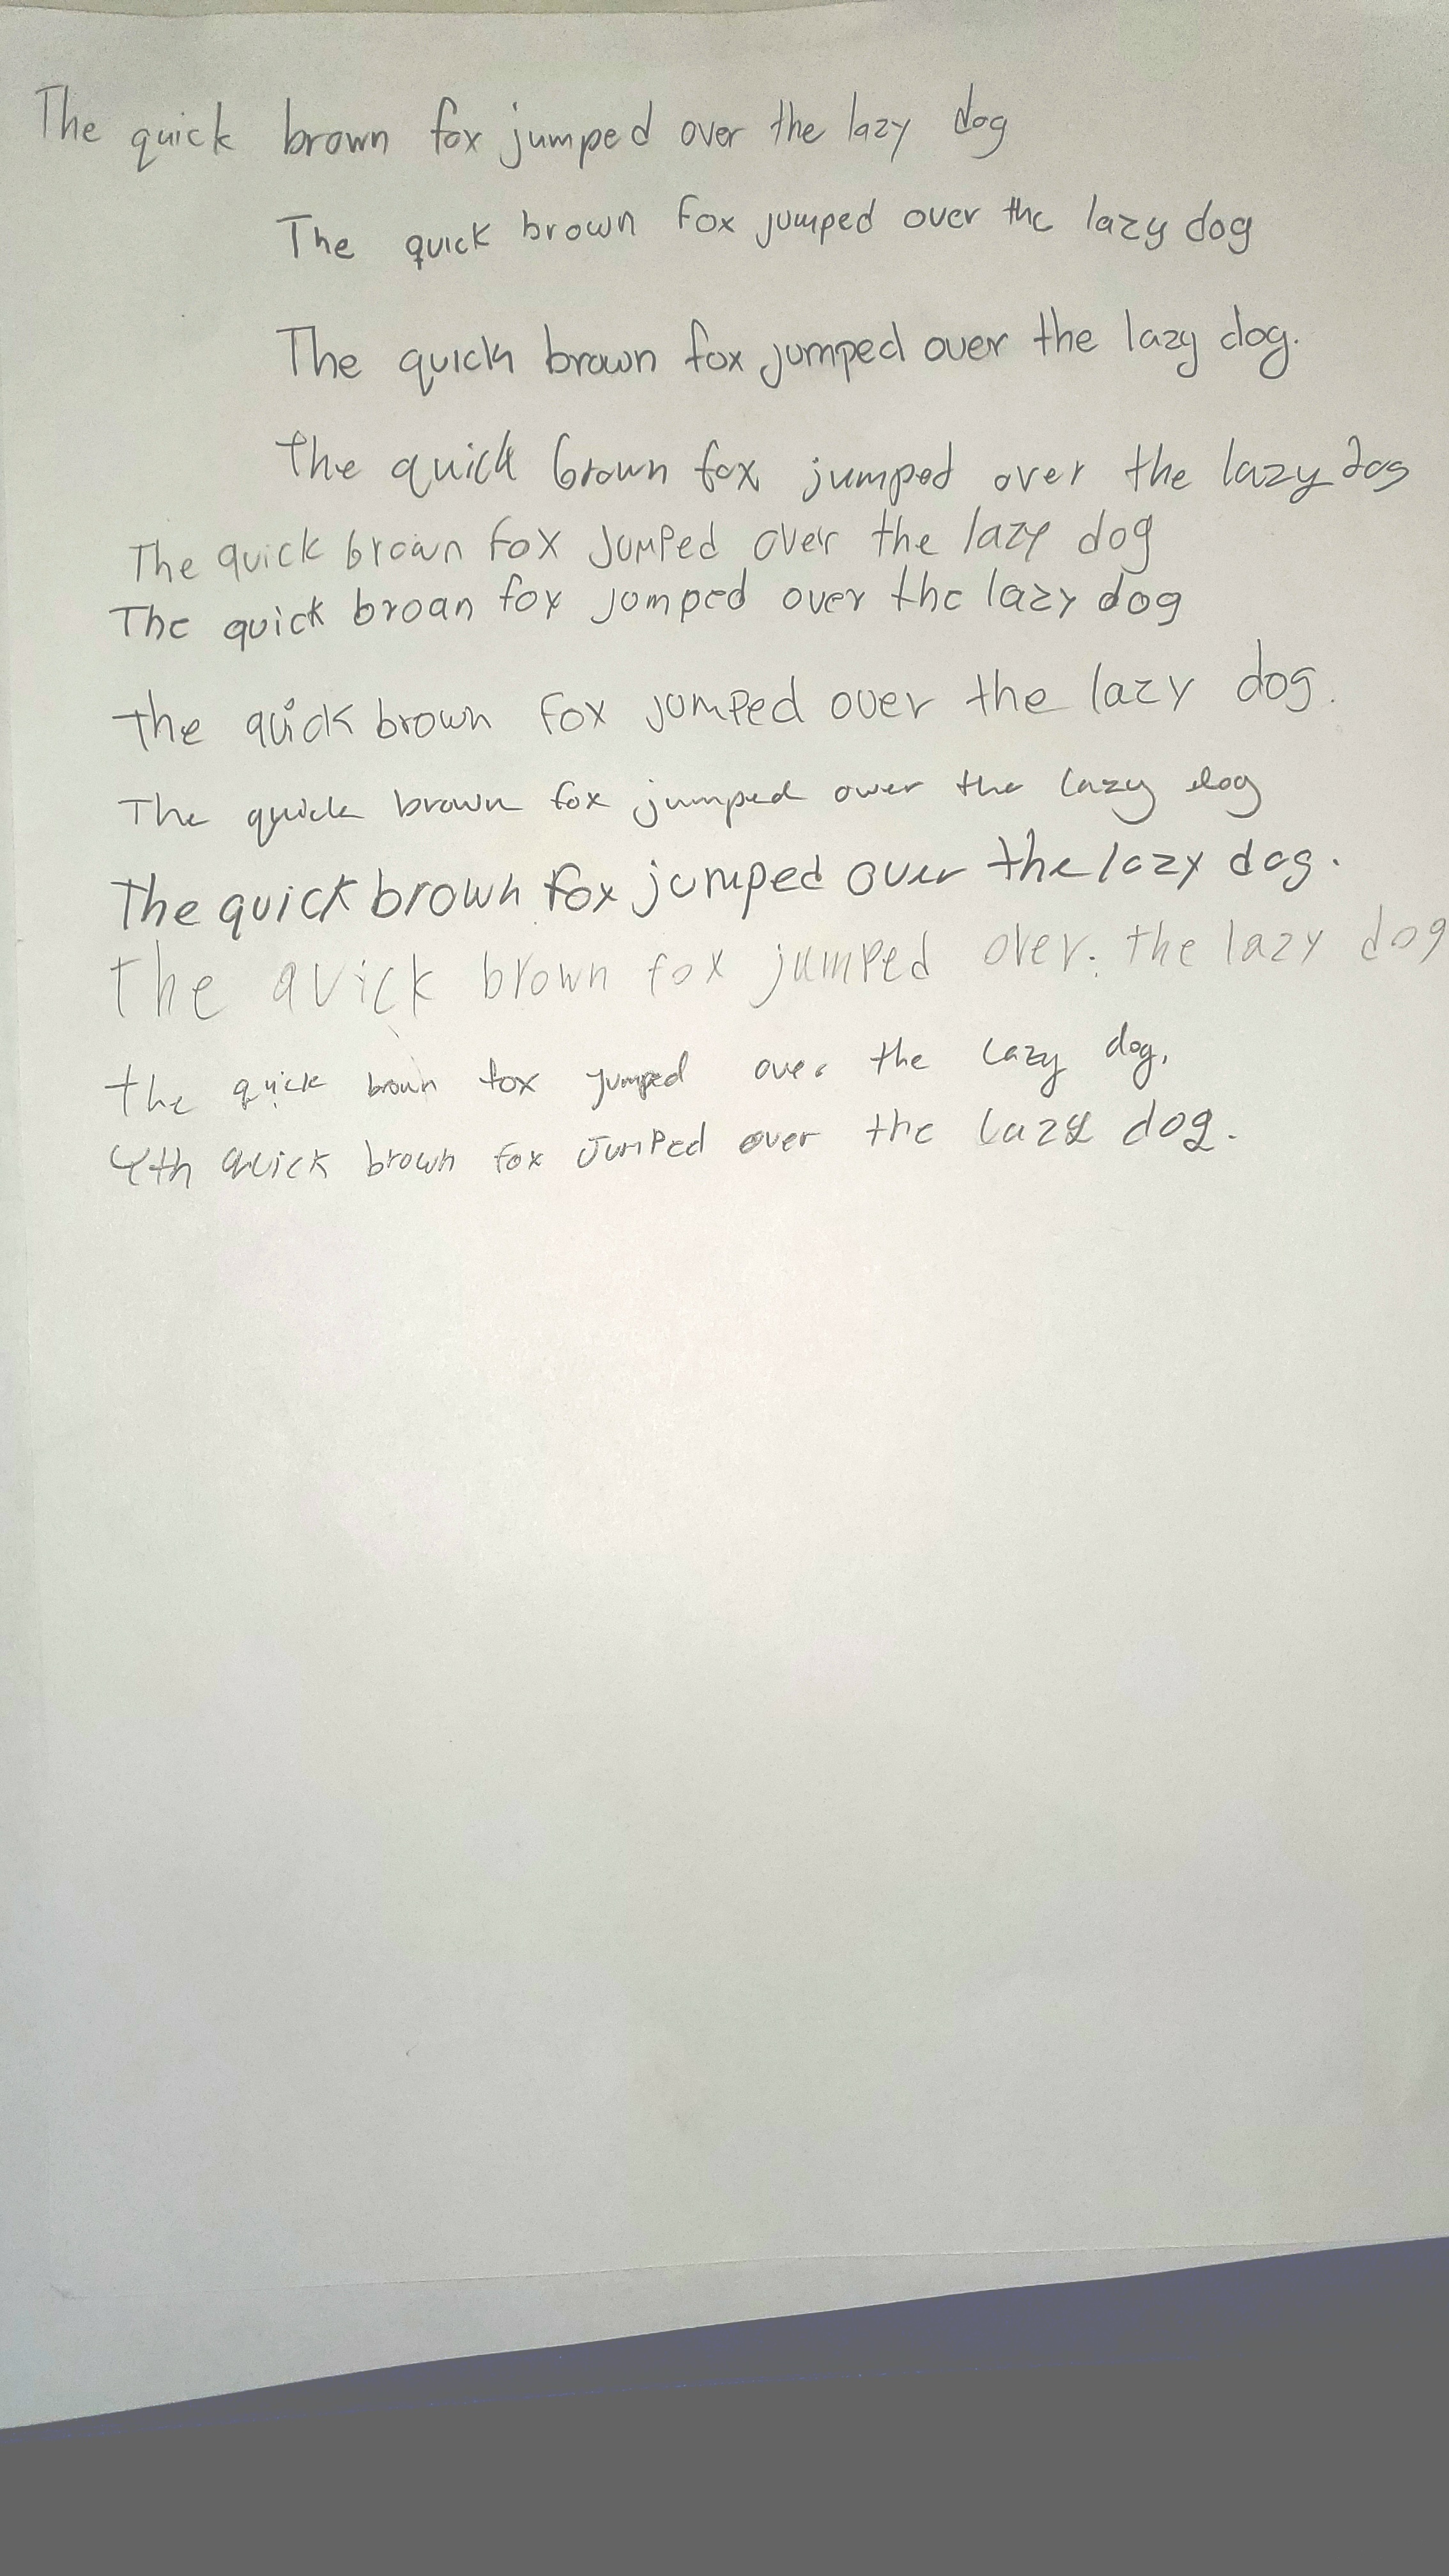 The quick brown fox jumped over the lazy dog
The quick brown fox jumped over the lazy dog
The quick brown fox jumped over the lazy dog.
The quick brown fox jumped over the lazy dog
The quick brown fox Jumped over the lazy dog
The quick broan fox jomped over the lazy dog
the quick brown fox jumped over the lazy dog.
The quick brown fox jumped ower the lazy dog
The quick brown fox jumped over the lazy dog.
the quick brown fox jumped over. the lazy dog
the quick brown fox jumped over the lazy dog.
4th quick brown fox Jumped over the lazy dog.